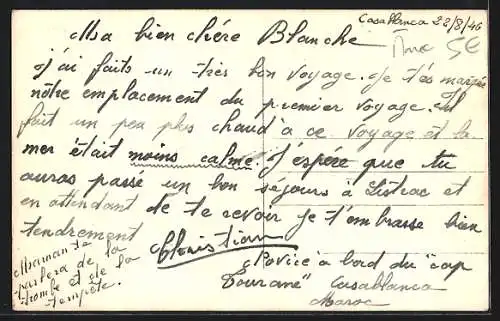 Casablanca 22/8/46
Ma bien chére Blanche
j'ai faits un très bon voyage. Je t'és marquée
nôtre emplacement du premier voyage. Il
fait un peu plus chaud à ce voyage et la
mer était moins calme. J'éspére que tu
auras passé un bon séjours à Listrac et
en attendant de te revoir je t'embrasse bien
tendrement
Christian
Maman te
parlera de la
trombe et de la
tempête.
Novice à bord du "cap
Tourane" Casablanca
Maroc